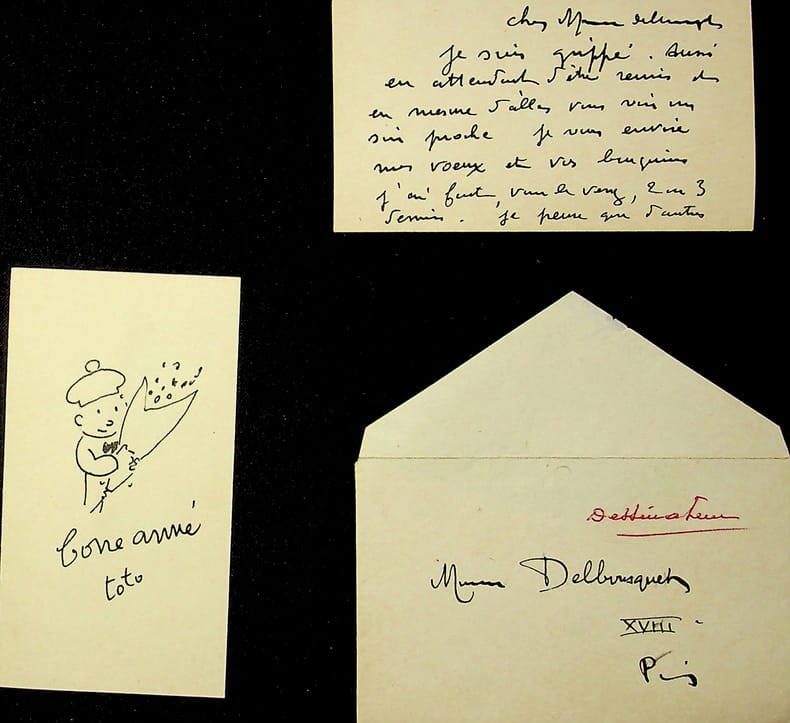 chez Mme Delbousquets
je suis grippé. Aussi
en attendant d'être remis et
en mesure d'aller vous voir un
soir proche je vous envoie
mes voeux et vos bouquins
j'ai faut, vous le verrez, 2 ou 3
dessins. je pense que d'autres
Bone anné
toto
Destinateur
Mme Delbousquets
XVIII
Paris